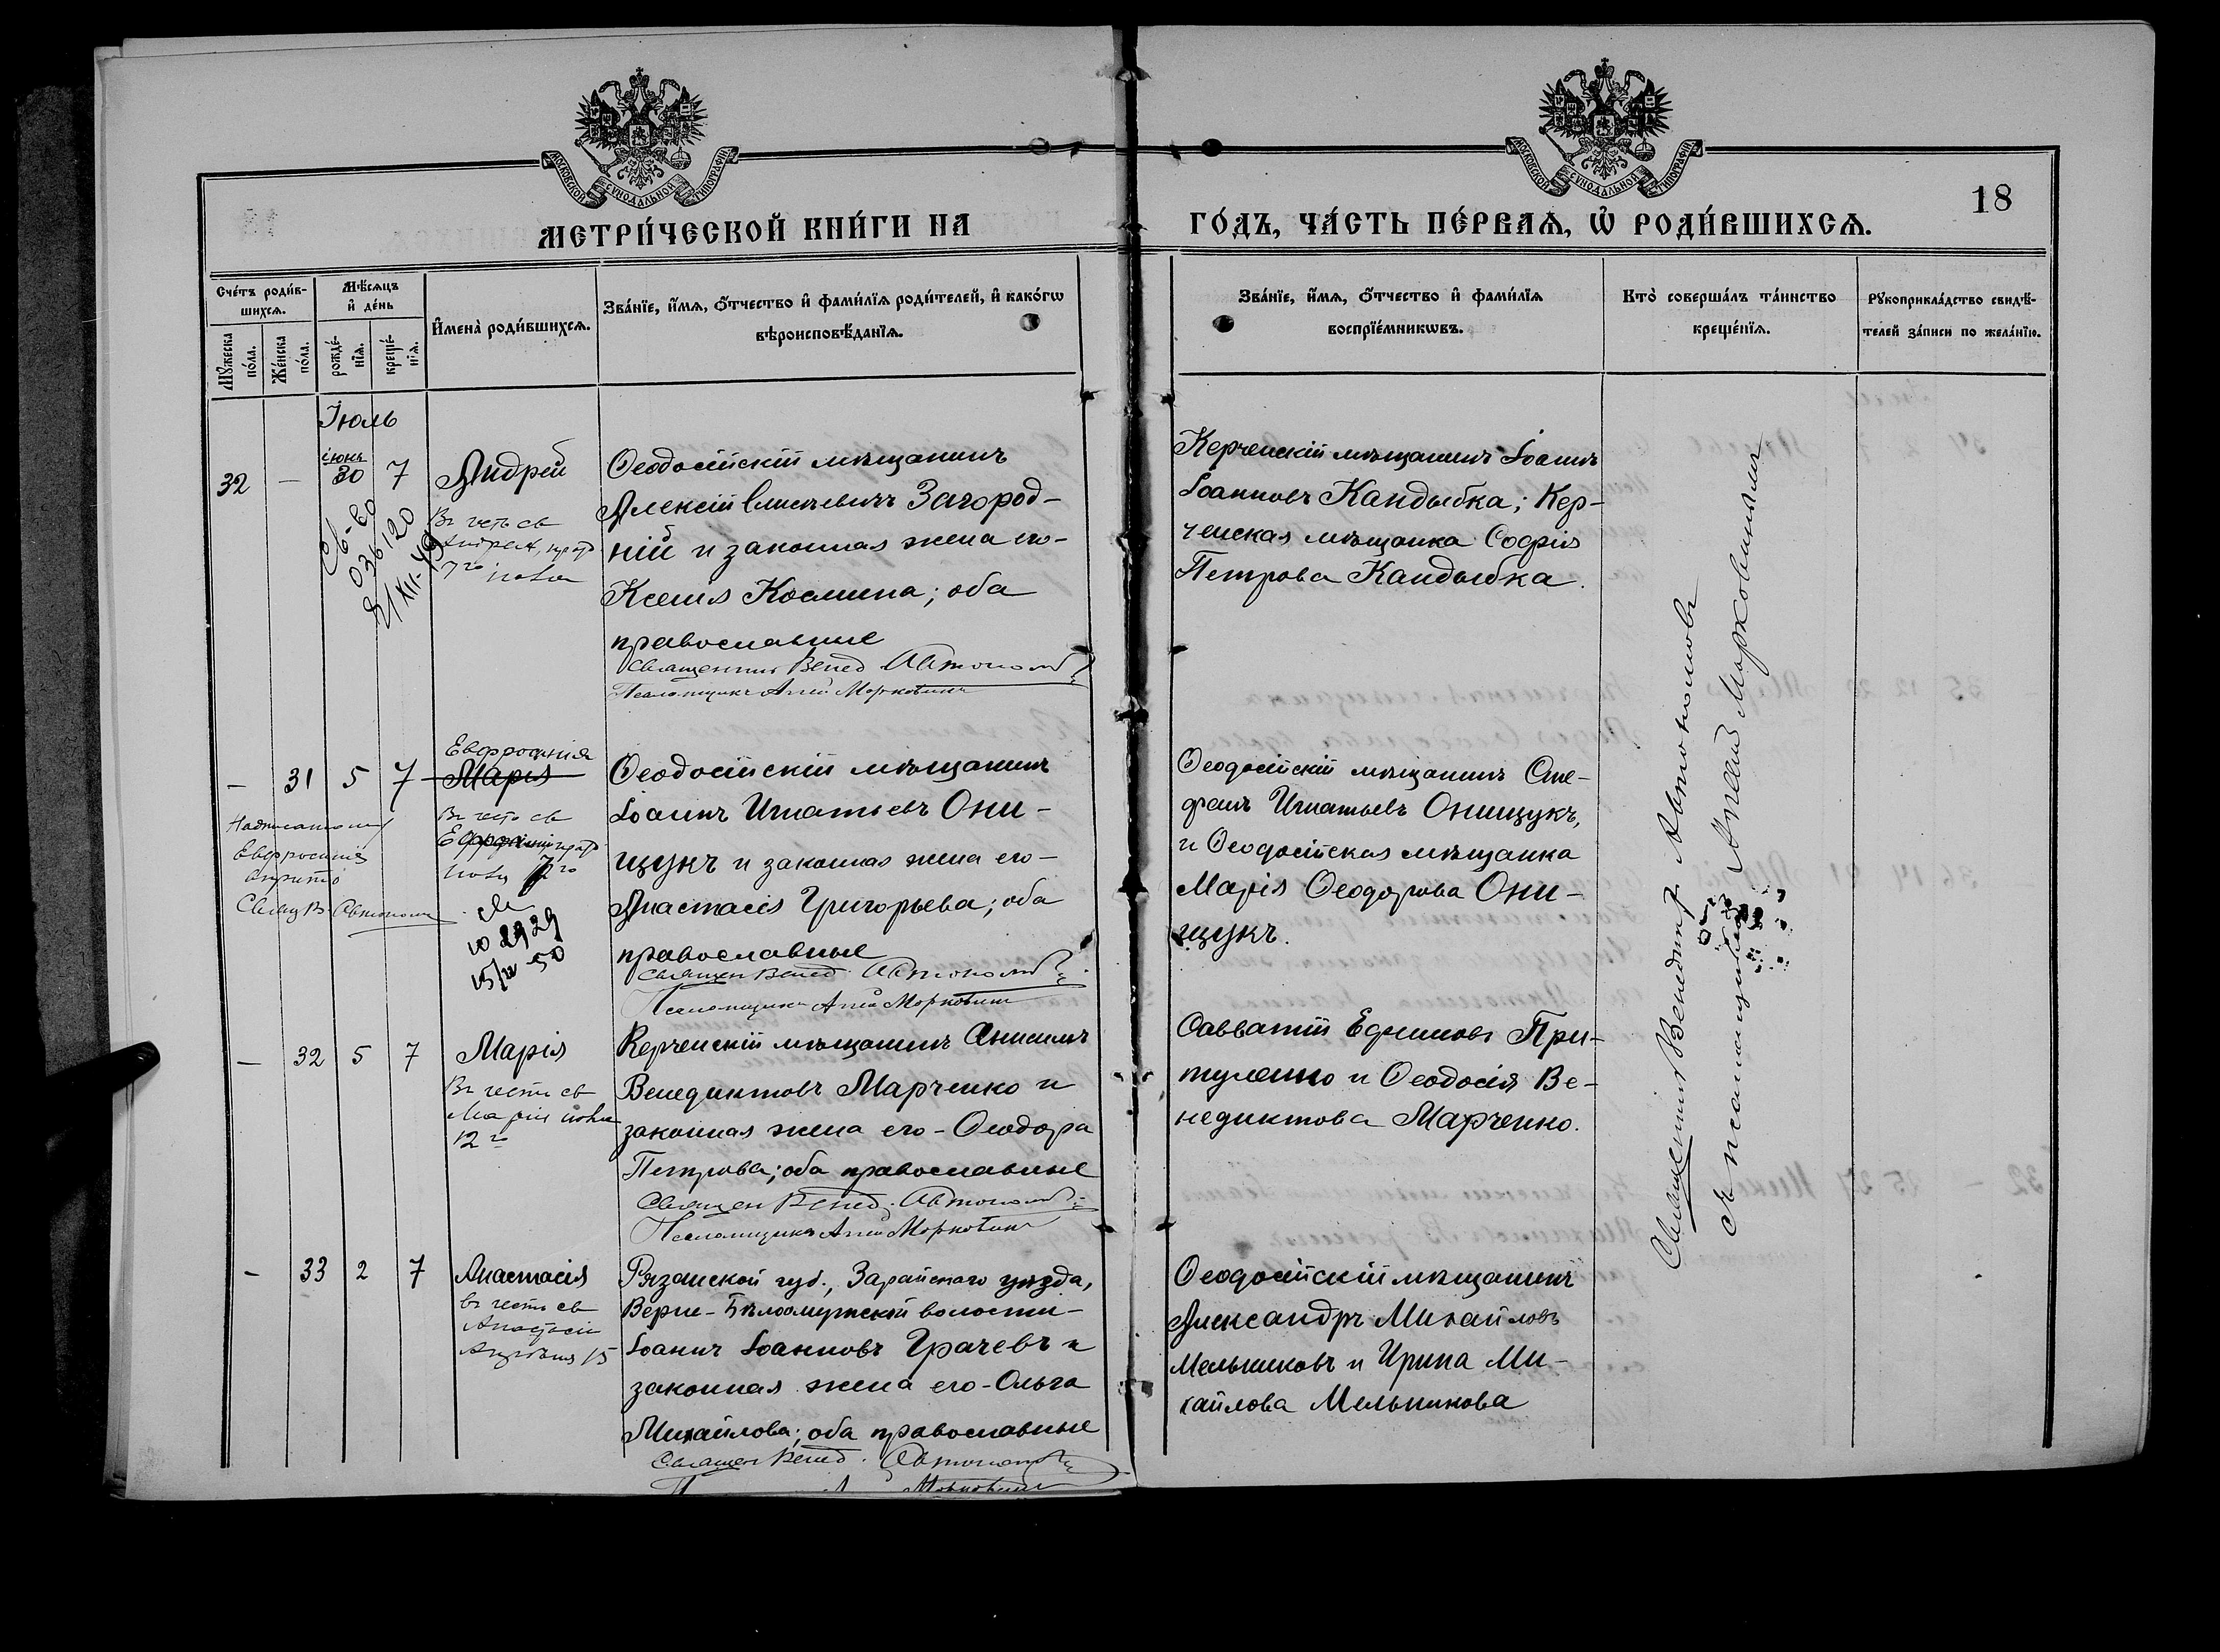 МОСКОВСКОЙ СУНОДАЛЬНОЙ ТИПОГРАФІИ
МОСКОВСКОЙ СУНОДАЛЬНОЙ ТИПОГРАФІИ
18
МЕТРИ́ЧЕСКОЙ КНИ́ГИ НА
ГО́ДЪ, ЧА́СТЬ ПЕ́РВАѦ, Ѡ҆ РОДИ́ВШИХСѦ.
Сче́тъ роди́в-
шихсѧ.
Мꙋ́жеска по́ла.
Же́нска по́ла.
Мѣ́сѧцъ
и҆ де́нь
рожде́-
нїѧ.
креще́-
нїѧ.
И҆мена̀ роди́вшихсѧ.
Зва́нїе, и҆́мѧ, ѻ҆́тчество и҆ фами́лїѧ роди́телей, и҆ како́гѡ
вѣроисповѣ́данїѧ.
Зва́нїе, и҆́мѧ, ѻ҆́тчество и҆ фами́лїѧ
воспрїе́мникѡвъ.
Кто̀ соверша́лъ та́инство
креще́нїѧ.
Рꙋкоприкла́дство свидѣ́-
телей за́писи по жела́нїю.
Іюль
32 — іюнь 30 7 Андрей
Въ честь св
Андрея, празд
7го іюля
Св-во
036120
21 XII-49
Ѳеодосійскій мѣщанинъ
Алексій Загород-
ній и законная жена его-
Ксенія Космина; оба
православные
Священник Венед Автономовъ
Псаломщикъ Агей Морковинъ
Керченскій мѣщанинъ Іоаннъ
Іоанновъ Кандыбка; Кер-
ченская мѣщанка Софія
Петрова Кандыбка.
— 31 5 7 Евфросинія
Марія
Въ честь св
празд
іюля
Надписанному
Евфросинія
Свящ В. Автономов
ю 2929
50
Ѳеодосійскій мѣщанинъ
Іоаннъ Игнатьевъ Они-
щукъ и законная жена его-
Анастасія Григорьева; оба
православные
Священ Венед. Автономовъ
Псаломщикъ Агей Морковинъ
Ѳеодосійскій мѣщанинъ Сте-
фанъ Игнатьевъ Онищукъ,
и Ѳеодосійская мѣщанка
Марія Ѳеодорова Они-
щукъ.
— 32 5 7 Марія
Въ честь св
Маріи іюля
12го
Керченскій мѣщанинъ Онисимъ
Венедиктовъ Марченко и
законная жена его-Ѳеодора
Петрова; оба православные
Священ Венед. Автономовъ
Псаломщикъ Агей Морковинъ
Савватій Ефимовъ При-
туленко и Ѳеодосія Ве-
недиктова Марченко.
— 33 2 7 Анастасія
въ честь св
Анастасіи
15
Рязанской губ., Зарайскаго уѣзда,
Верхне-Бѣлоомутской волости-
Іоаннъ Іоанновъ Грачевъ и
законная жена его-Ольга
Михайлова; оба православные
Священ Венед. Автономовъ
Морковинъ
Ѳеодосійскій мѣщанинъ
Александръ Михайловъ
Мельниковъ и Ирина Ми-
хайлова Мельникова
Священникъ Венедиктъ Автономовъ
съ псаломщикомъ Агеемъ Морковинымъ